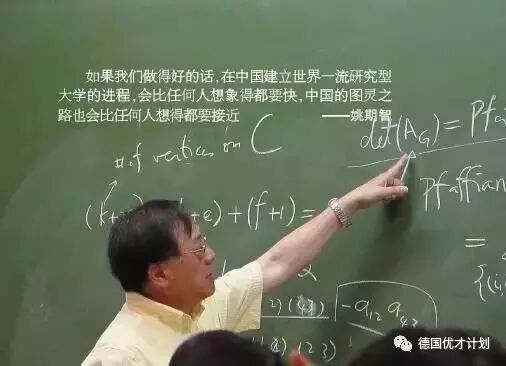 如果我们做得好的话,在中国建立世界一流研究型
大学的进程,会比任何人想象得都要快,中国的图灵之
路也会比任何人想得都要接近 ——姚期智
# of vertices in C
det(AG) = Pfa
Pfaffian
+ (f+1) =
=
2
-a12 a43
德国优才计划